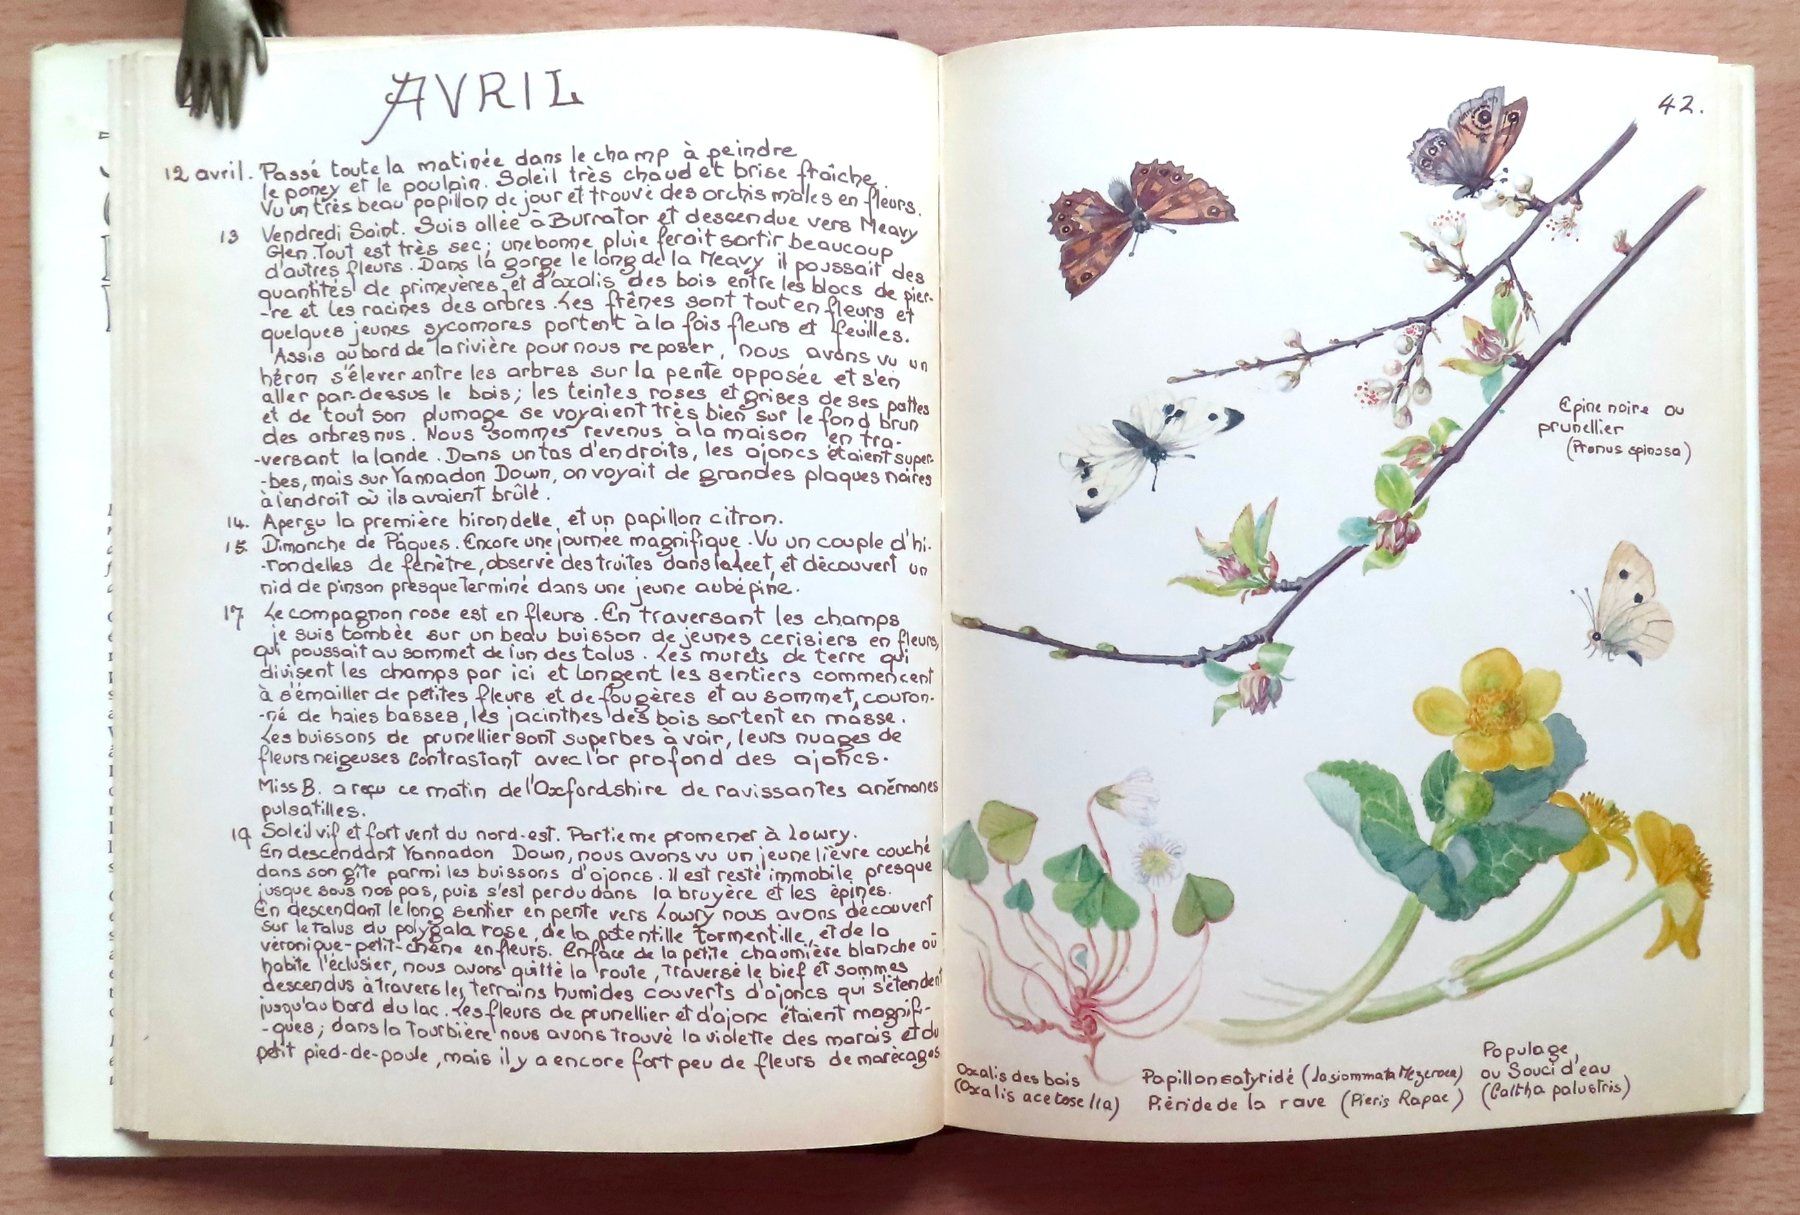 AVRIL
12 avril. Passé toute la matinée dans le champ à peindre
le poney et le poulain. Soleil très chaud et brise fraîche.
Vu un très beau papillon de jour et trouvé des orchis mâles en fleurs.
13 Vendredi Saint. Suis allée à Burrator et descendue vers Meavy
Glen. Tout est très sec; une bonne pluie ferait sortir beaucoup
d'autres fleurs. Dans la gorge le long de la Meavy il poussait des
quantités de primevères et d'oxalis des bois entre les blocs de pier-
-re et les racines des arbres. Les frênes sont tout en fleurs et
quelques jeunes sycomores portent à la fois fleurs et feuilles.
Assis au bord de la rivière pour nous reposer, nous avons vu un
héron s'élever entre les arbres sur la pente opposée et s'en
aller par-dessus le bois; les teintes roses et grises de ses pattes
et de tout son plumage se voyaient très bien sur le fond brun
des arbres nus. Nous sommes revenus à la maison en tra-
-versant la lande. Dans un tas d'endroits, les ajoncs étaient super-
-bes, mais sur Yannadon Down, on voyait de grandes plaques noires
à l'endroit où ils avaient brûlé.
14. Aperçu la première hirondelle et un papillon citron.
15. Dimanche de Pâques. Encore une journée magnifique. Vu un couple d'hi-
-rondelles de fenêtre, observé des truites dans la Leet, et découvert un
nid de pinson presque terminé dans une jeune aubépine.
17 Le compagnon rose est en fleurs. En traversant les champs
je suis tombée sur un beau buisson de jeunes cerisiers en fleurs,
qui poussait au sommet de l'un des talus. Les murets de terre qui
divisent les champs par ici et longent les sentiers commencent
à s'émailler de petites fleurs et de fougères et au sommet, couron-
-né de haies basses, les jacinthes des bois sortent en masse.
Les buissons de prunellier sont superbes à voir, leurs nuages de
fleurs neigeuses contrastant avec l'or profond des ajoncs.
Miss B. a reçu ce matin de l'Oxfordshire de ravissantes anémones
pulsatilles.
19 Soleil vif et fort vent du nord-est. Partie me promener à Lowry.
En descendant Yannadon Down, nous avons vu un jeune lièvre couché
dans son gîte parmi les buissons d'ajoncs. Il est resté immobile presque
jusque sous nos pas, puis s'est perdu dans la bruyère et les épines.
En descendant le long sentier en pente vers Lowry nous avons découvert
sur le talus du polygala rose, de la potentille tormentille, et de la
véronique-petit-chêne en fleurs. En face de la petite chaumière blanche où
habite l'éclusier, nous avons quitté la route, traversé le bief et sommes
descendus à travers les terrains humides couverts d'ajoncs qui s'étendent
jusqu'au bord du lac. Les fleurs de prunellier et d'ajonc étaient magnifi-
-ques; dans la tourbière nous avons trouvé la violette des marais et du
petit pied-de-poule, mais il y a encore fort peu de fleurs de marécages
42.
Epine noire ou
prunellier
(Prunus spinosa)
Oxalis des bois
(Oxalis acetosella)
Papillon satyridé (Lasiommata Megeroea)
Piéride de la rave (Pieris Rapae)
Populage,
ou Souci d'eau
(Caltha palustris)